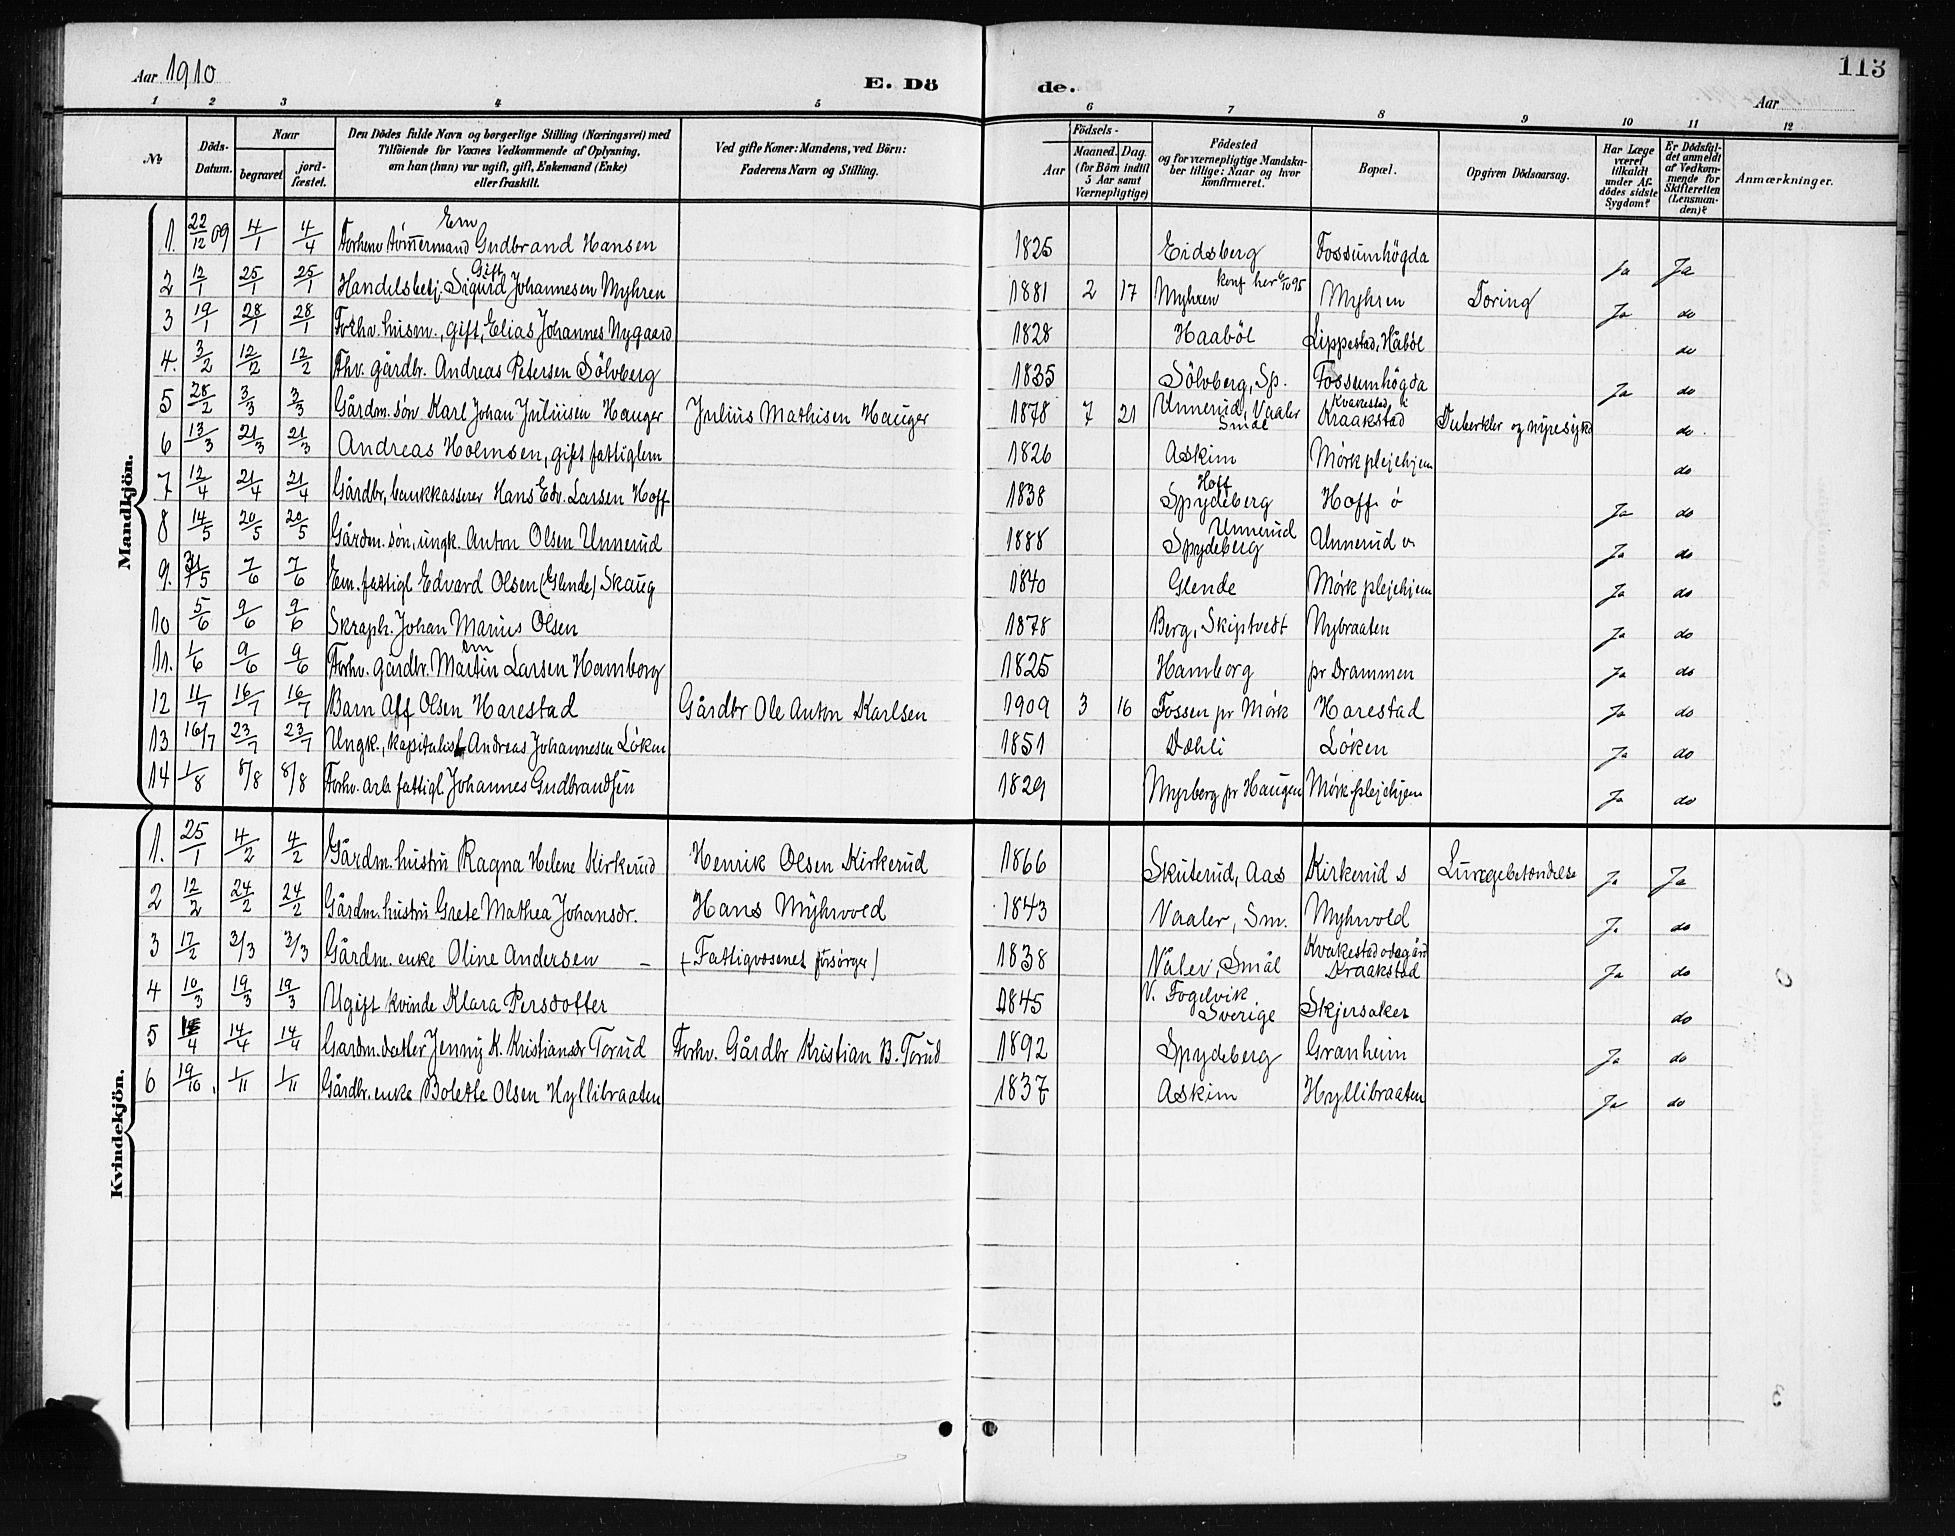 Aar 1910
E. Dö de.
113
Aar
1 2 3 4 5 6 7 8 9 10 11 12
No
Döds-Datum.
Naar
begravet
jordfæstet.
Den Dödes fulde Navn og borgerlige Stilling (Næringsvei) med
Tilföiende for Voxnes Vedkommende af Oplysning,
om han (hun) var ugift, gift, Enkemand (Enke)
eller fraskilt.
Ved gifte Koner: Mandens, ved Börn:
Faderens Navn og Stilling.
Födsels-
Aar
Maaned. Dag.
(for Börn indtil
5 Aar samt
Værnepligtige)
Födested
og for værnepligtige Mandskaber tillige: Naar og hvor
konfirmeret.
Bopæl.
Opgiven Dödsaarsag.
Har Læge
været
tilkaldt
under Afdödes sidste
Sygdom?
Er Dödsfaldet anmeldt
af Vedkommende for
Skifteretten
(Lensmanden)?
Anmærkninger.
Mandkjön.
1. 22/12 09 4/1 4/4 Forhenv tömmermand Em Gudbrand Hansen 1825 Eidsberg Fossumhögda Ja Ja
2 12/1 25/1 25/1 Handelsbetj. Gift Sigurd Johannesen Myhren 1881 2 17 Myhren konf her 6/10 95 Myhren Tæring Ja do
3 19/1 28/1 28/1 Forhv. husm., gift, Elias Johannes Nygaard 1828 Haaböl Lippestad, Håböl do
4. 3/2 12/2 12/2 Fhv. gårdbr. Andreas Petersen Sölvberg 1835 Sölvberg, Sp. Fossumhögda Ja do
5 28/2 3/3 3/3 Gårdm. sön Karl Johan Juliusen Hauger Julius Mathisen Hauger 1878 7 21 Unnerud, Vaaler Smål Kvakestad i Kraakstad Tuberkler og nyresyke do
6 13/3 21/3 21/3 Andreas Holmsen, gift fattiglem 1826 Askim Mörk plejehjem do
7 12/4 21/4 21/4 Gårdbr, bankkasserer Hans Edv. Larsen Hoff 1838 Hoff Spydeberg Hoff ö Ja do
8 14/5 20/5 20/5 Gårdm. sön, ungk. Anton Olsen Unnerud 1888 Unnerud Spydeberg Unnerud v. Ja do
9. 31/5 7/6 7/6 Em. fattigl Edvard Olsen (Glende) Skaug 1840 Glende Mörk plejehjem Ja do
10 5/6 9/6 9/6 Skraph. Johan Marius Olsen 1878 Berg, Skiptvedt Nybraaten Ja do
11. 1/6 9/6 9/6 Forhv. gårdbr. em Martin Larsen Hamborg 1825 Hamborg pr Drammen Ja do
12 11/7 16/7 16/7 Barn Alf Olsen Harestad Gårdbr Ole Anton Karlsen 1909 3 16 Fossen pr Mörk Harestad Ja do
13 16/7 23/7 23/7 Ungk., kapitalist Andreas Johannesen Löken 1851 Dæhli Löken Ja do
14 1/8 8/8 8/8 Forhv. arb fattigl. Johannes Gudbrandsen 1829 Myrberg pr Haugen Mörk plejehjem Ja do
Kvindekjön.
1. 25/1 4/2 4/2 Gårdm. hustru Ragna Helene Kirkerud Henrik Olsen Kirkerud 1866 Skuterud, Aas Kirkerud s Lungebetændelse Ja Ja
2 12/2 24/2 24/2 Gårdm. hustru Grete Mathea Johansdr. Hans Myhrvold 1843 Vaaler, Sm. Myhrvold Ja do
3 17/2 3/3 3/3 Gårdm. enke Oline Andersen – (Fattigvæsenet forsörger) 1838 Våler, Smål Kvakestad ødegård Kraakstad Ja do
4 10/3 19/3 19/3 Ugift kvinde Klara Persdotter 1845 V. Fogelvik Sverige Skjersaker do
5 14/4 14/4 Gardm. datter Jenny K. Kristiansdr Torud Forhv. Gårdbr Kristian B. Torud 1892 Spydeberg Granheim Ja do
6 19/10. 1/11 1/11 Gårdbr. enke Bolette Olsen Hyllibraaten 1837 Askim Hyllibraaten Ja do